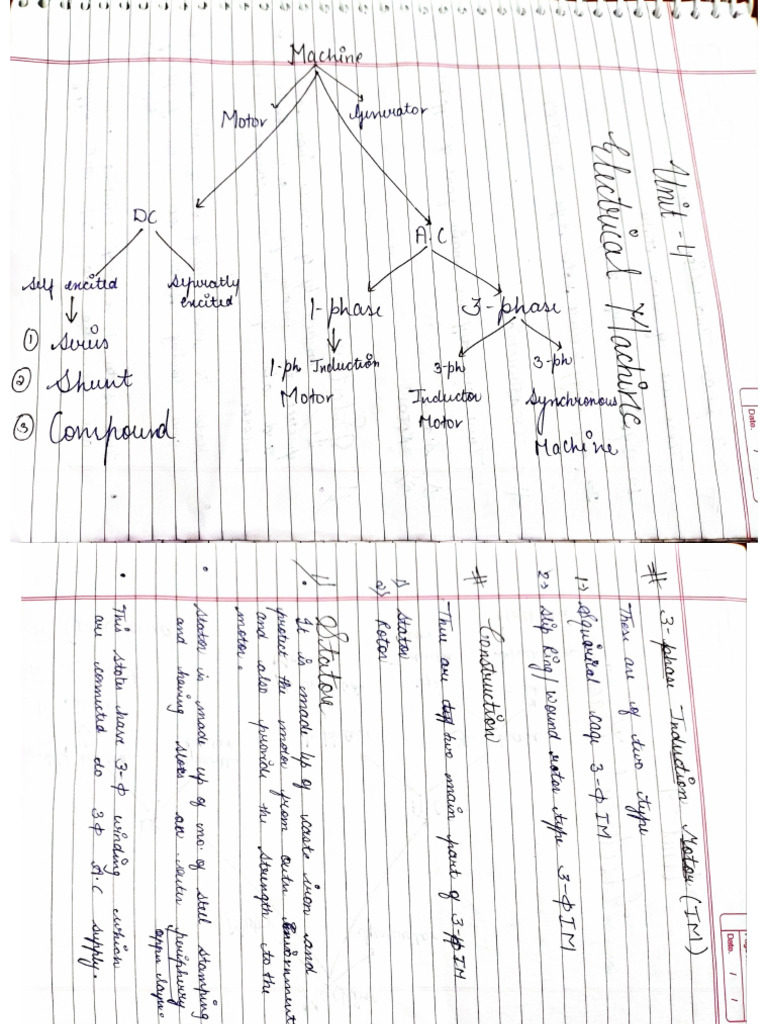 Unit - 4
Electrical Machine
Machine
Motor
Generator
DC
A.C
Self excited
Seperatly
excited
① Series
② Shunt
③ Compound
1-phase
3-phase
1-ph Induction
Motor
3-ph
Inductor
Motor
3-ph
Synchronous
Machine
Date.
# 3-phase Induction Motor (IM)
These are of two type
1) Squirrel cage 3-ф IM
2) Slip Ring/wound rotor type 3-ф IM
# Construction
There are two main part of 3-ф IM
1) Stator
2) Rotor
1) Stator
• It is made-up of caste iron and
protect the motor from outer Environment
and also provide the strength to the
motor.
• stator is made up of no. of steel stamping
and having slots on outer periphery
• This stator have 3-ф winding which
are connected to 3ф A.C supply.
Date. / /